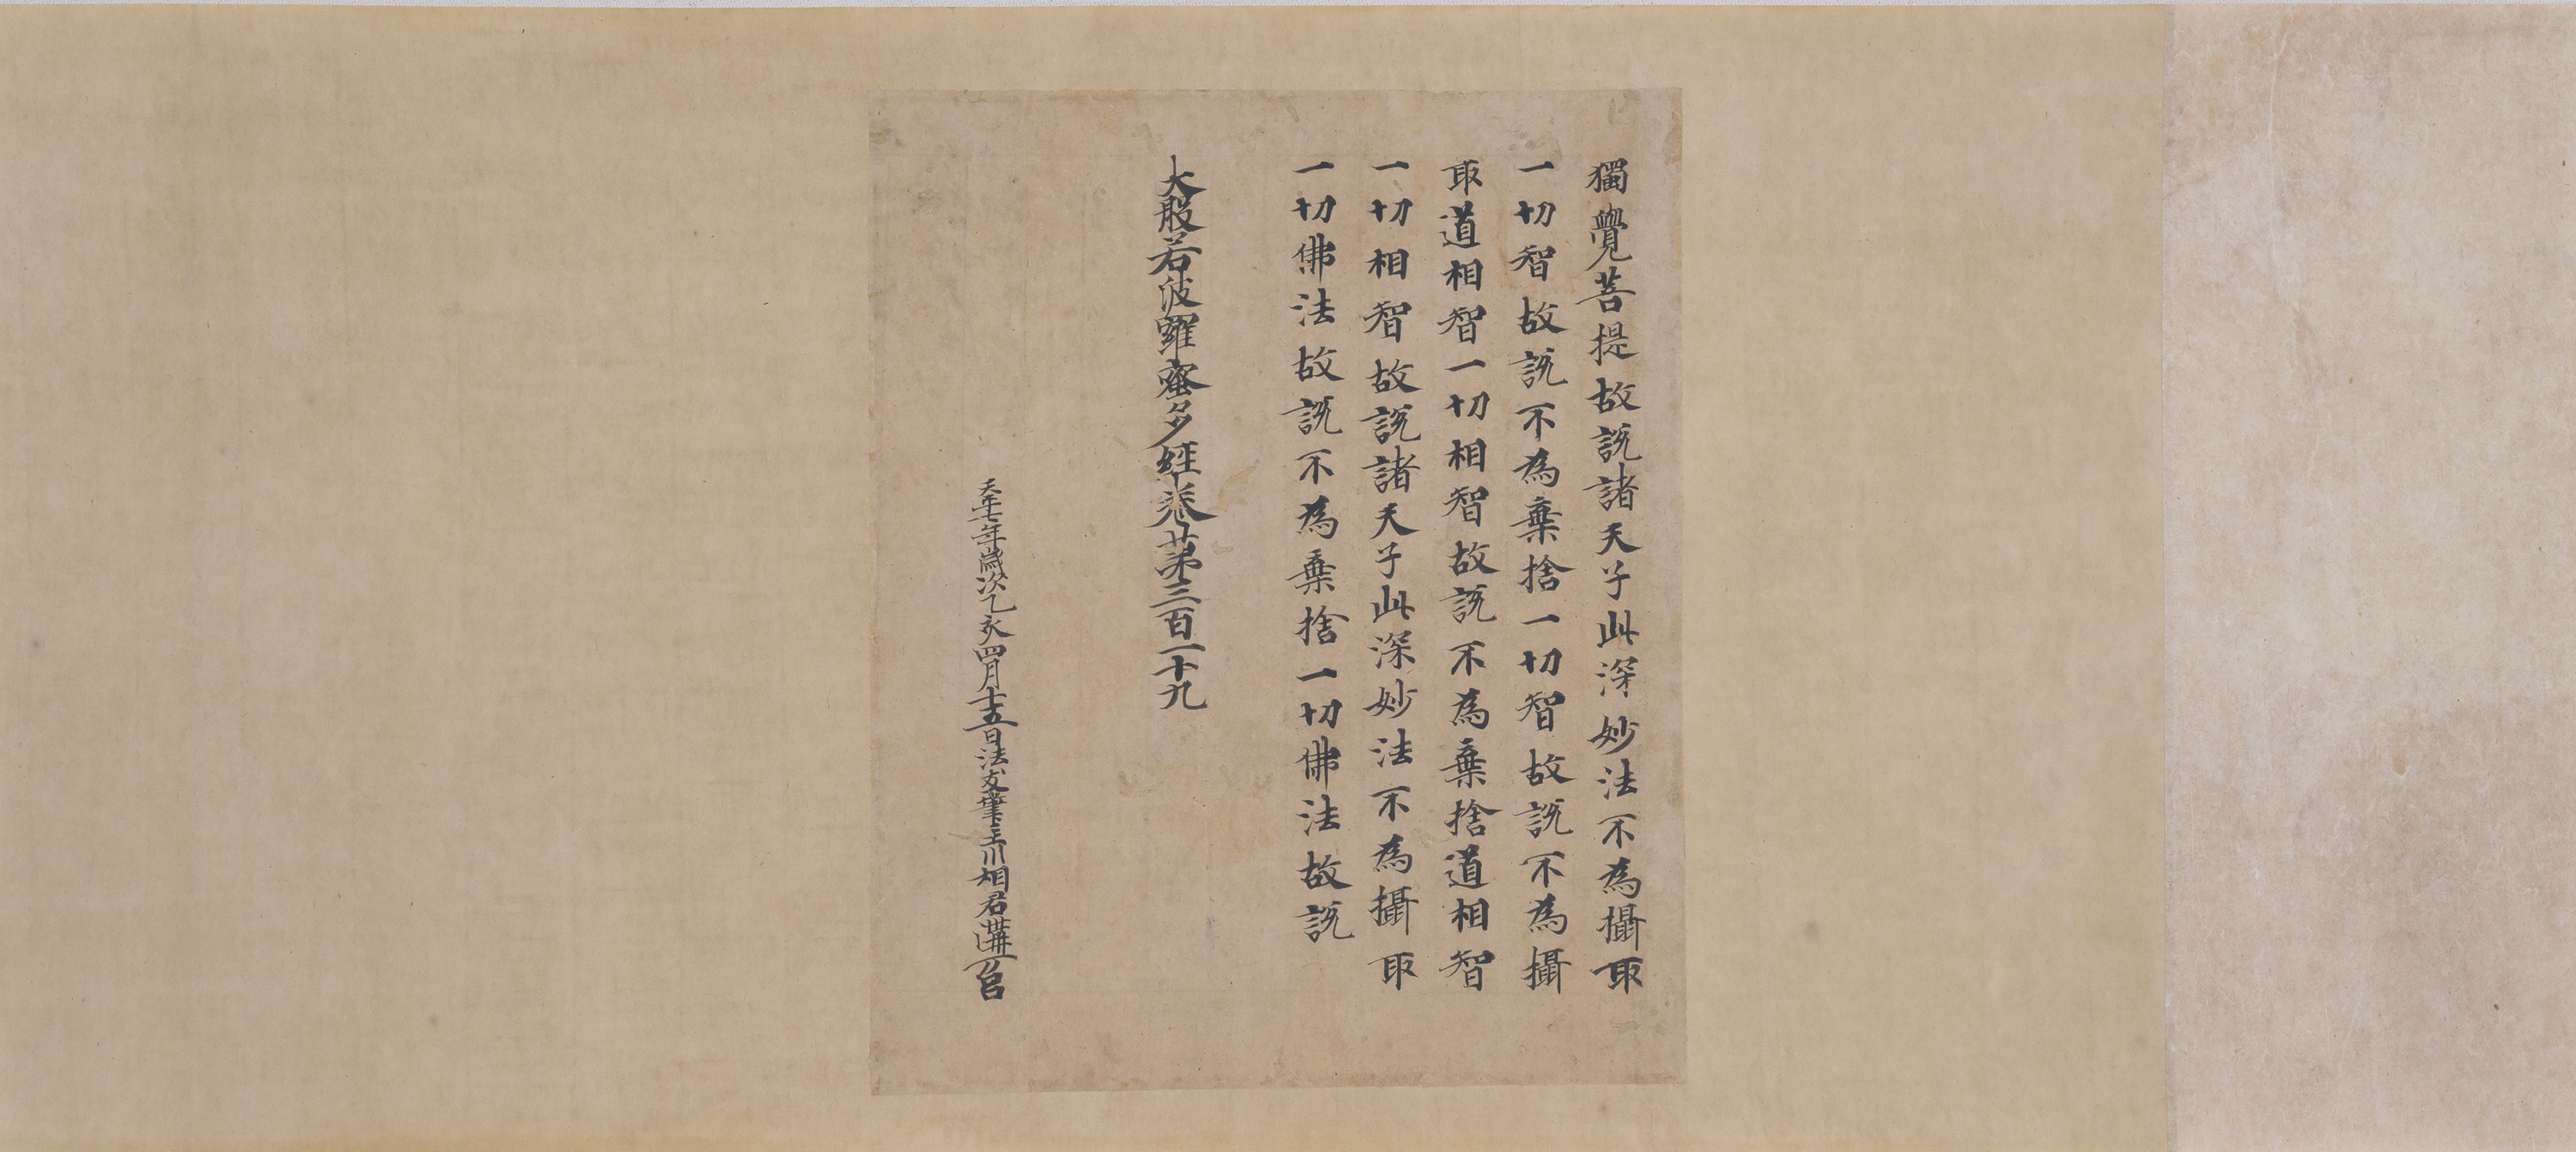 獨覺菩提故說諸天子此深妙法不為攝取
一切智故說不為棄捨一切智故說不為攝
取道相智一切相智故說不為棄捨道相智
一切相智故說諸天子此深妙法不為攝取
一切佛法故說不為棄捨一切佛法故說
大般若波羅蜜多經卷第三百一十九
天平七年歲次乙亥四月十五日法友筆主川相君溝